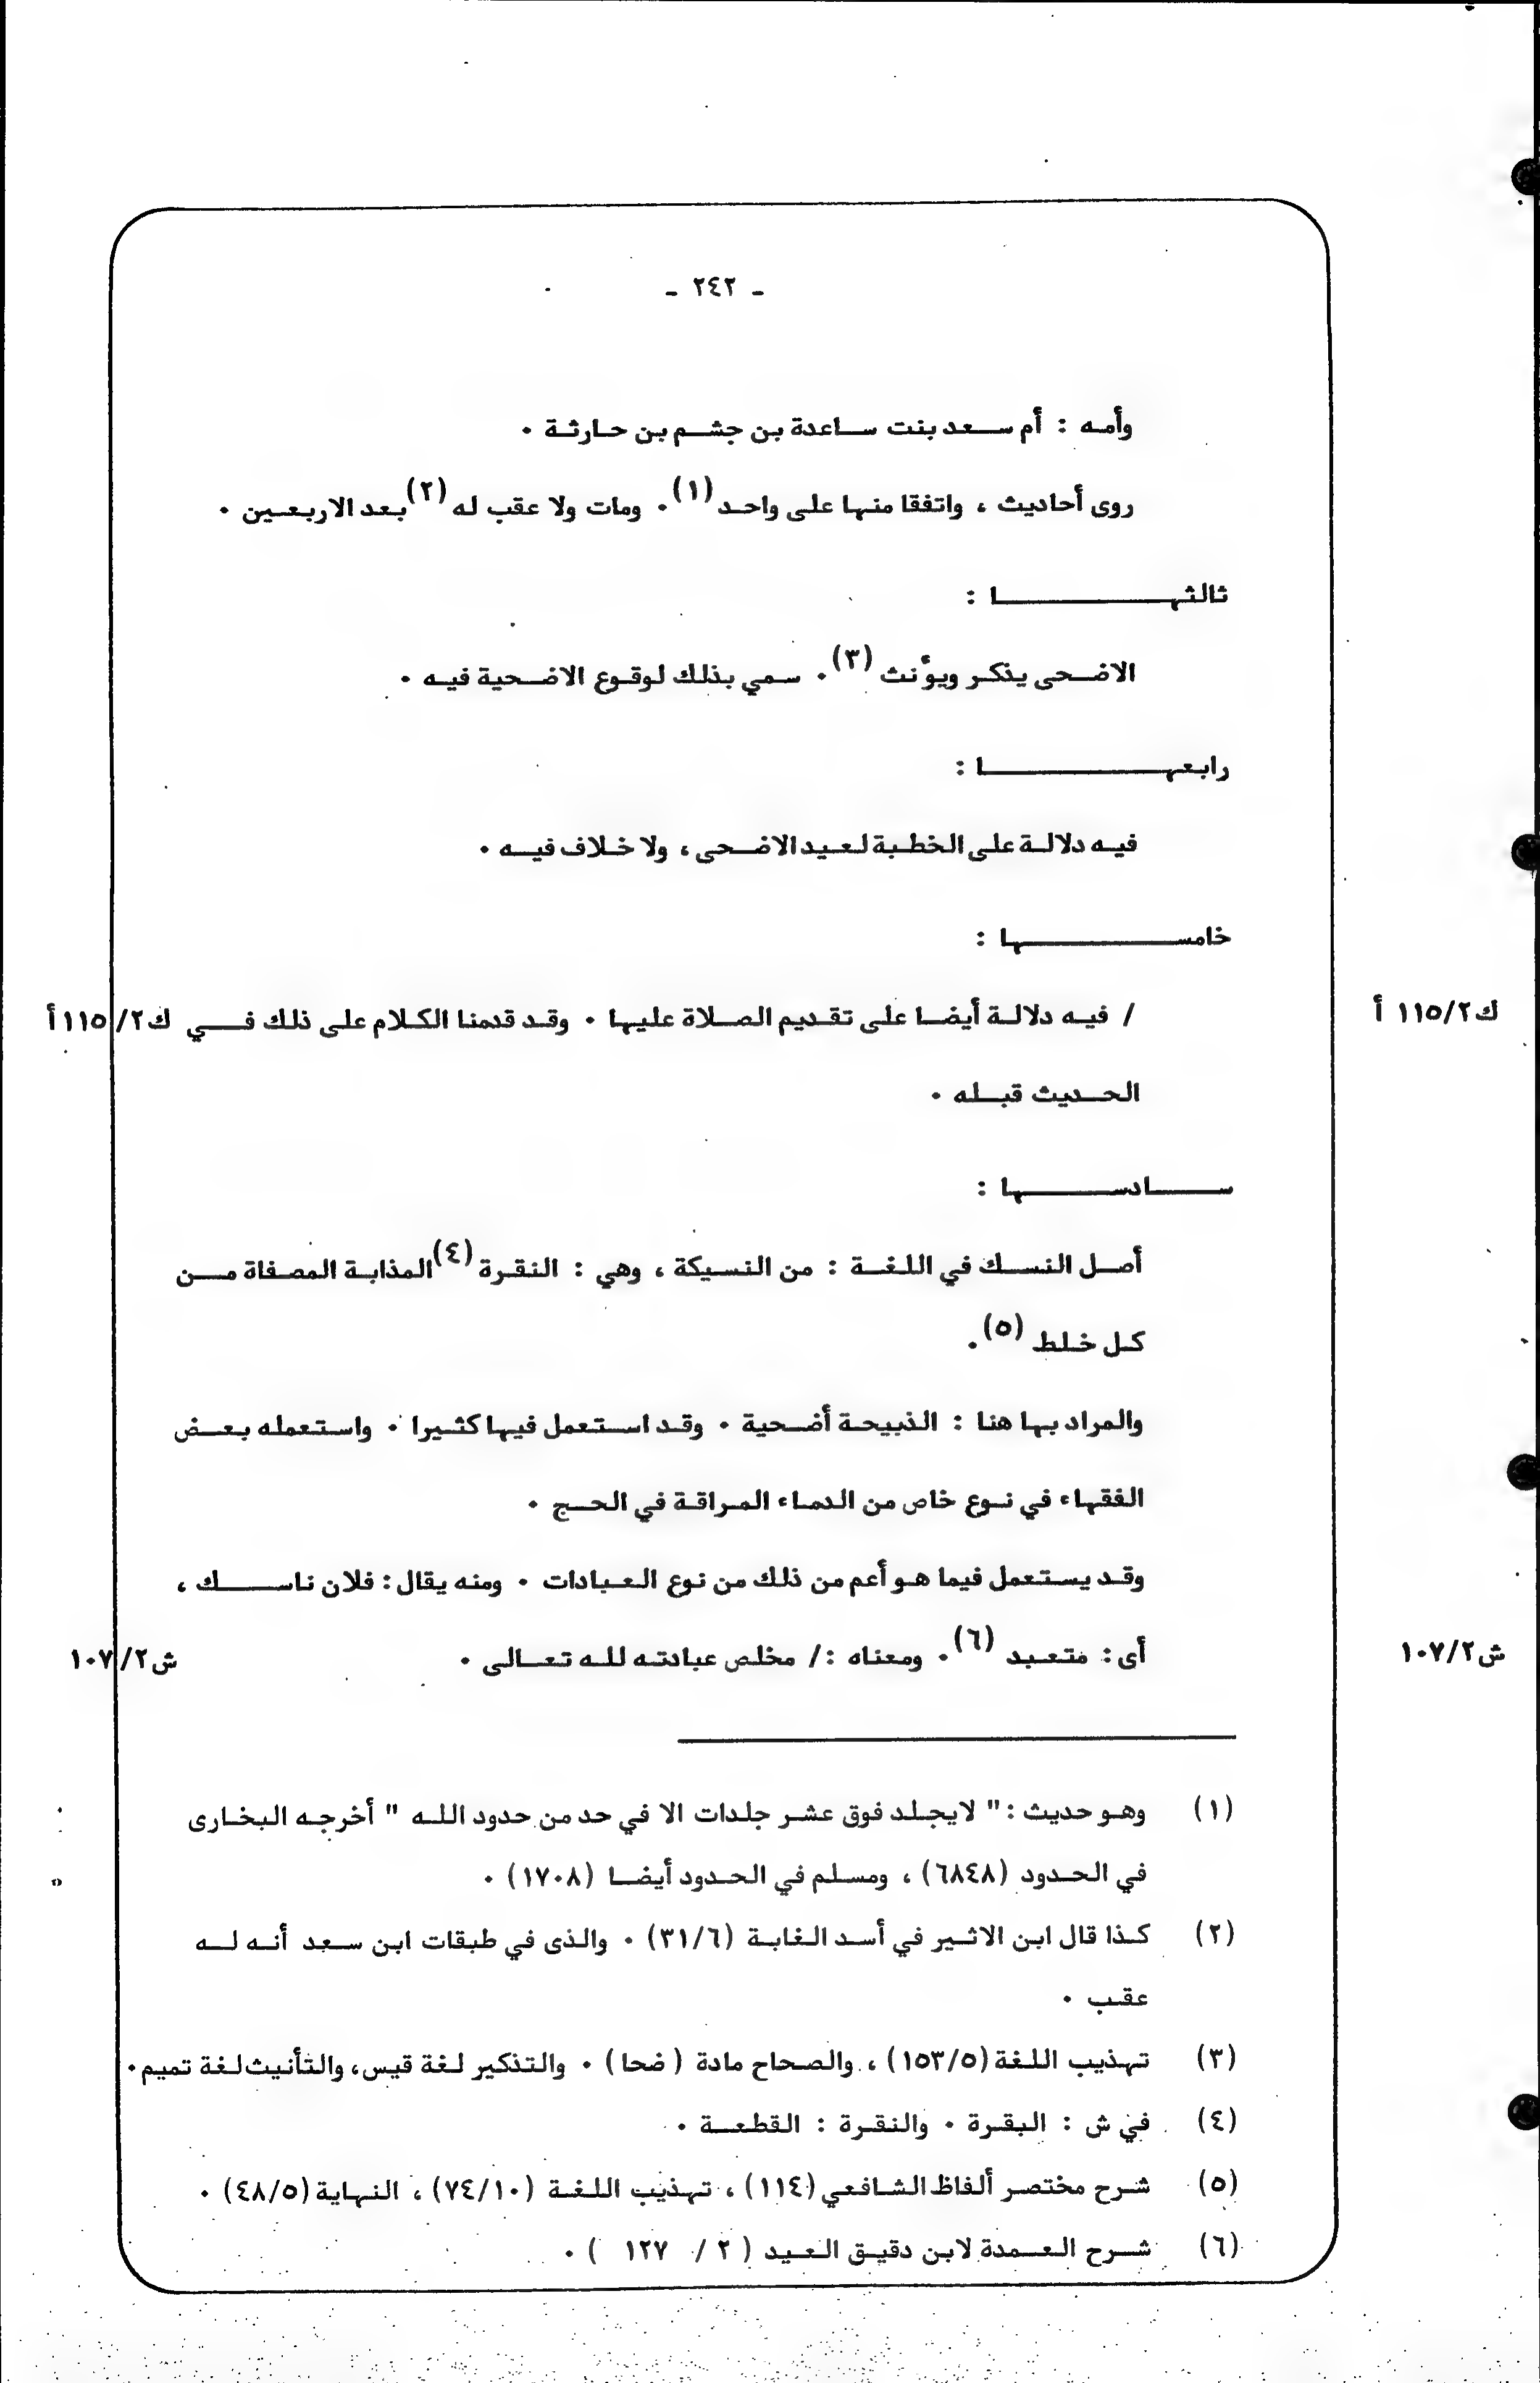 - ٢٤٢ -
وأمه : أم سعد بنت ساعدة بن جشم بن حارثة ٠
روى أحاديث ، واتفقا منها على واحد (١)٠ ومات ولا عقب له (٢) بعد الاربعين ٠
ثالثها :
الاضحى يذكر ويؤنث (٣)٠ سمي بذلك لوقوع الاضحية فيه ٠
رابعها :
فيه دلالة على الخطبة لعيد الاضحى ، ولا خلاف فيه ٠
خامسها :
ك١١٥/٢ أ
/ فيه دلالة أيضا على تقديم الصلاة عليها ٠ وقد قدمنا الكلام على ذلك في ك١١٥/٢أ
الحديث قبله ٠
سادسها :
أصل النسك في اللغة : من النسيكة ، وهي : النقرة (٤) المذابة المصفاة من
كل خلط (٥)٠
والمراد بها هنا : الذبيحة أضحية ٠ وقد استعمل فيها كثيرا ٠ واستعمله بعض
الفقهاء في نوع خاص من الدماء المراقة في الحج ٠
وقد يستعمل فيما هو أعم من ذلك من نوع العبادات ٠ ومنه يقال : فلان ناسك ،
ش١٠٧/٢
أى : متعبد (٦)٠ ومعناه : / مخلص عبادته لله تعالى ٠ ش١٠٧/٢
(١) وهو حديث : " لايجلد فوق عشر جلدات الا في حد من حدود الله " أخرجه البخارى
في الحدود (٦٨٤٨) ، ومسلم في الحدود أيضا (١٧٠٨) ٠
(٢) كذا قال ابن الاثير في أسد الغابة (٣١/٦) ٠ والذى في طبقات ابن سعد أنه له
عقب ٠
(٣) تهذيب اللغة (١٥٣/٥) ، والصحاح مادة ( ضحا ) ٠ والتذكير لغة قيس ، والتأنيث لغة تميم ٠
(٤) في ش : البقرة ٠ والنقرة : القطعة ٠
(٥) شرح مختصر ألفاظ الشافعي (١١٤) ، تهذيب اللغة (٧٤/١٠) ، النهاية (٤٨/٥) ٠
(٦) شرح العمدة لابن دقيق العيد ( ٢ / ١٢٧ ) ٠